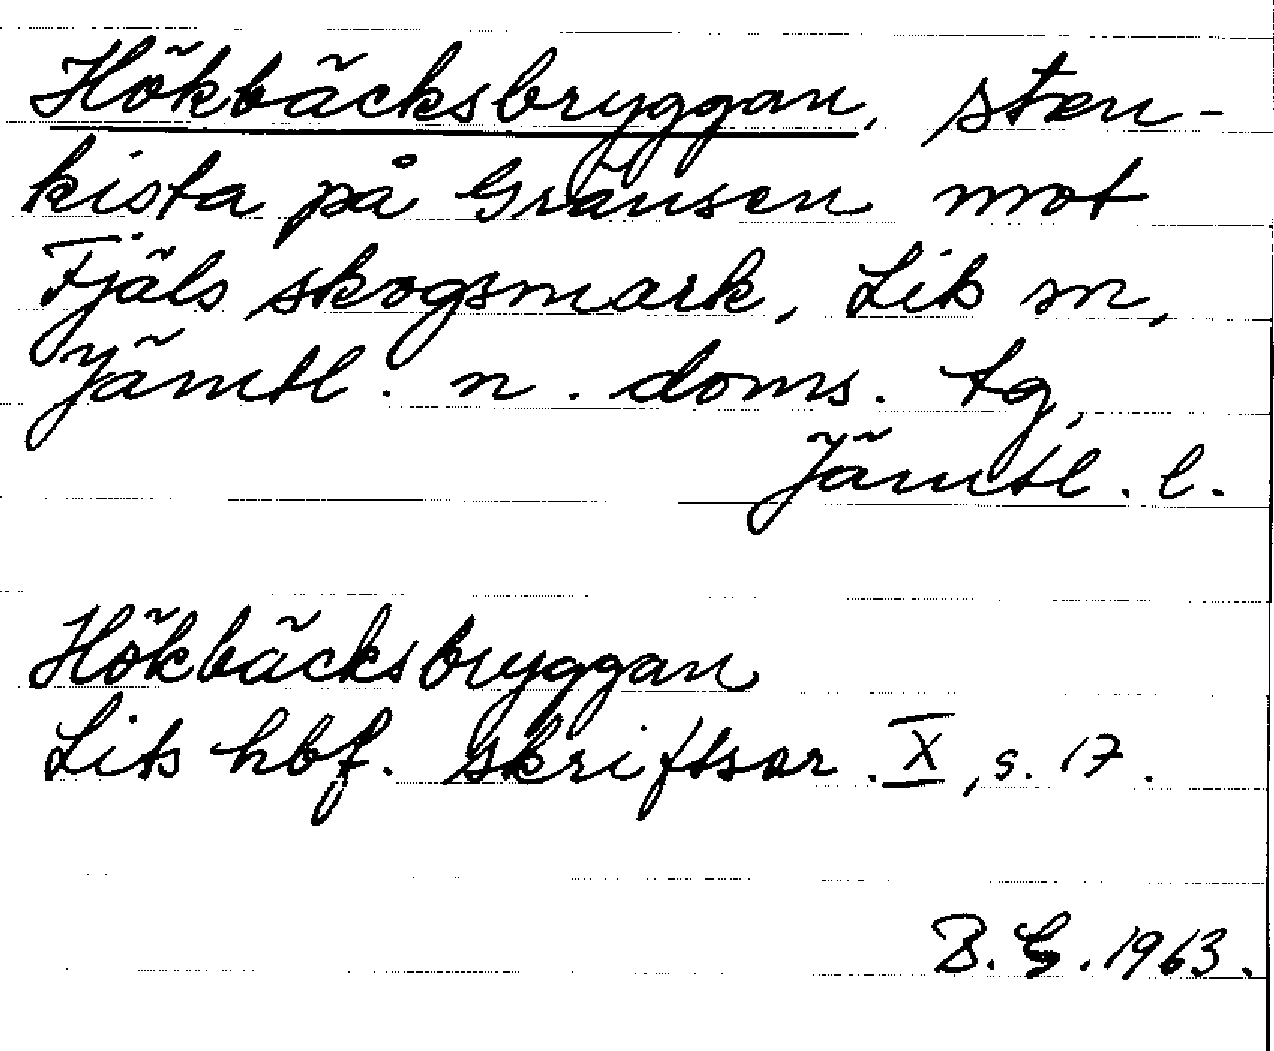 Hökbäcksbryggan, sten-
kista på Gränsen mot
Fjäls skogsmark, Lits sn,
Jämtl. n. doms. tg,
Jämtl. l.
Hökbäcksbryggan
Lits hbf. skriftser. X, s. 17.
B. G. 1963.